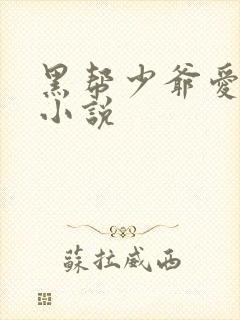 黑帮少爷愛
小說
蘇拉威西